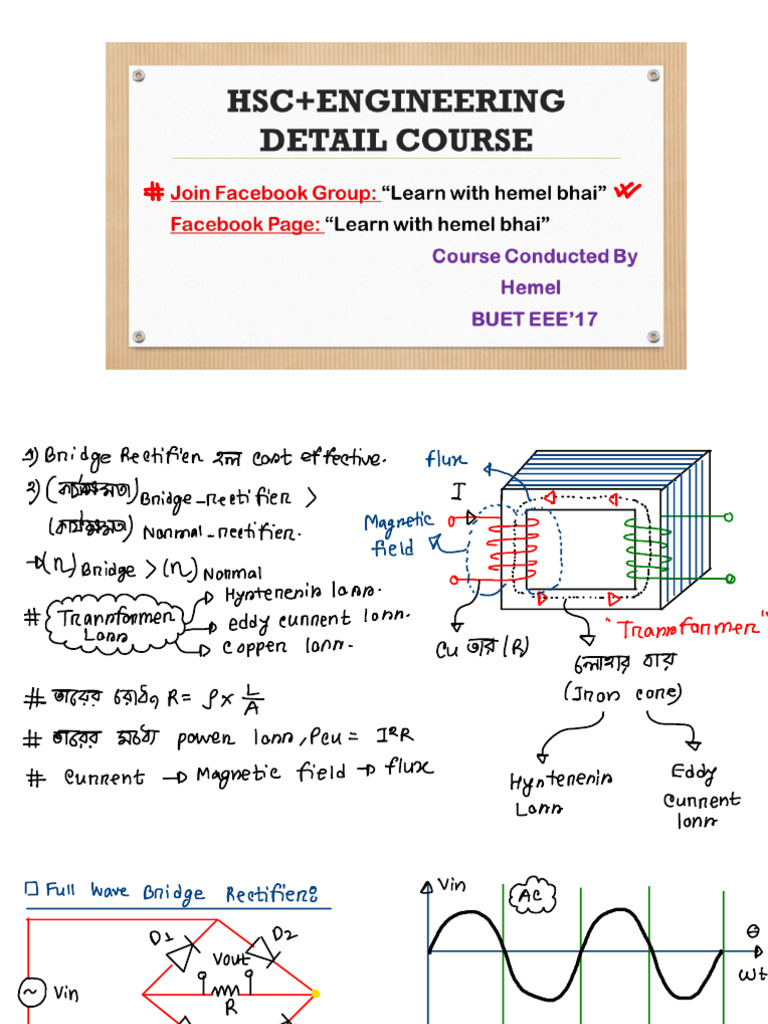 HSC+ENGINEERING
DETAIL COURSE
# Join Facebook Group: “Learn with hemel bhai”
Facebook Page: “Learn with hemel bhai”
Course Conducted By
Hemel
BUET EEE’17
১) Bridge Rectifier হল cost effective.
২) (কার্যক্ষমতা) Bridge-rectifier >
(কার্যক্ষমতা) Normal-rectifier.
→ (η) Bridge > (η) Normal
# Transformer Loss
Hysteresis loss.
eddy current loss.
copper loss.
# তারের রোধ, R = ρ × L/A
# তারের মধ্যে power loss, Pcu = I²R
# Current → Magnetic field → flux
flux
I
Magnetic field
Cu তার (R)
"Transformer"
লোহার বার
(Iron core)
Hysteresis Loss
Eddy Current loss
□ Full Wave Bridge Rectifier:
D1
D2
Vout
R
~ Vin
Vin
AC
θ
wt